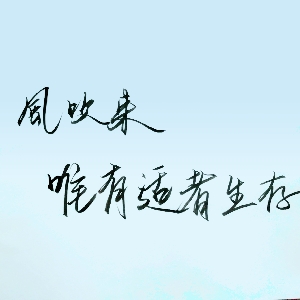 風吹来
唯有适者生存